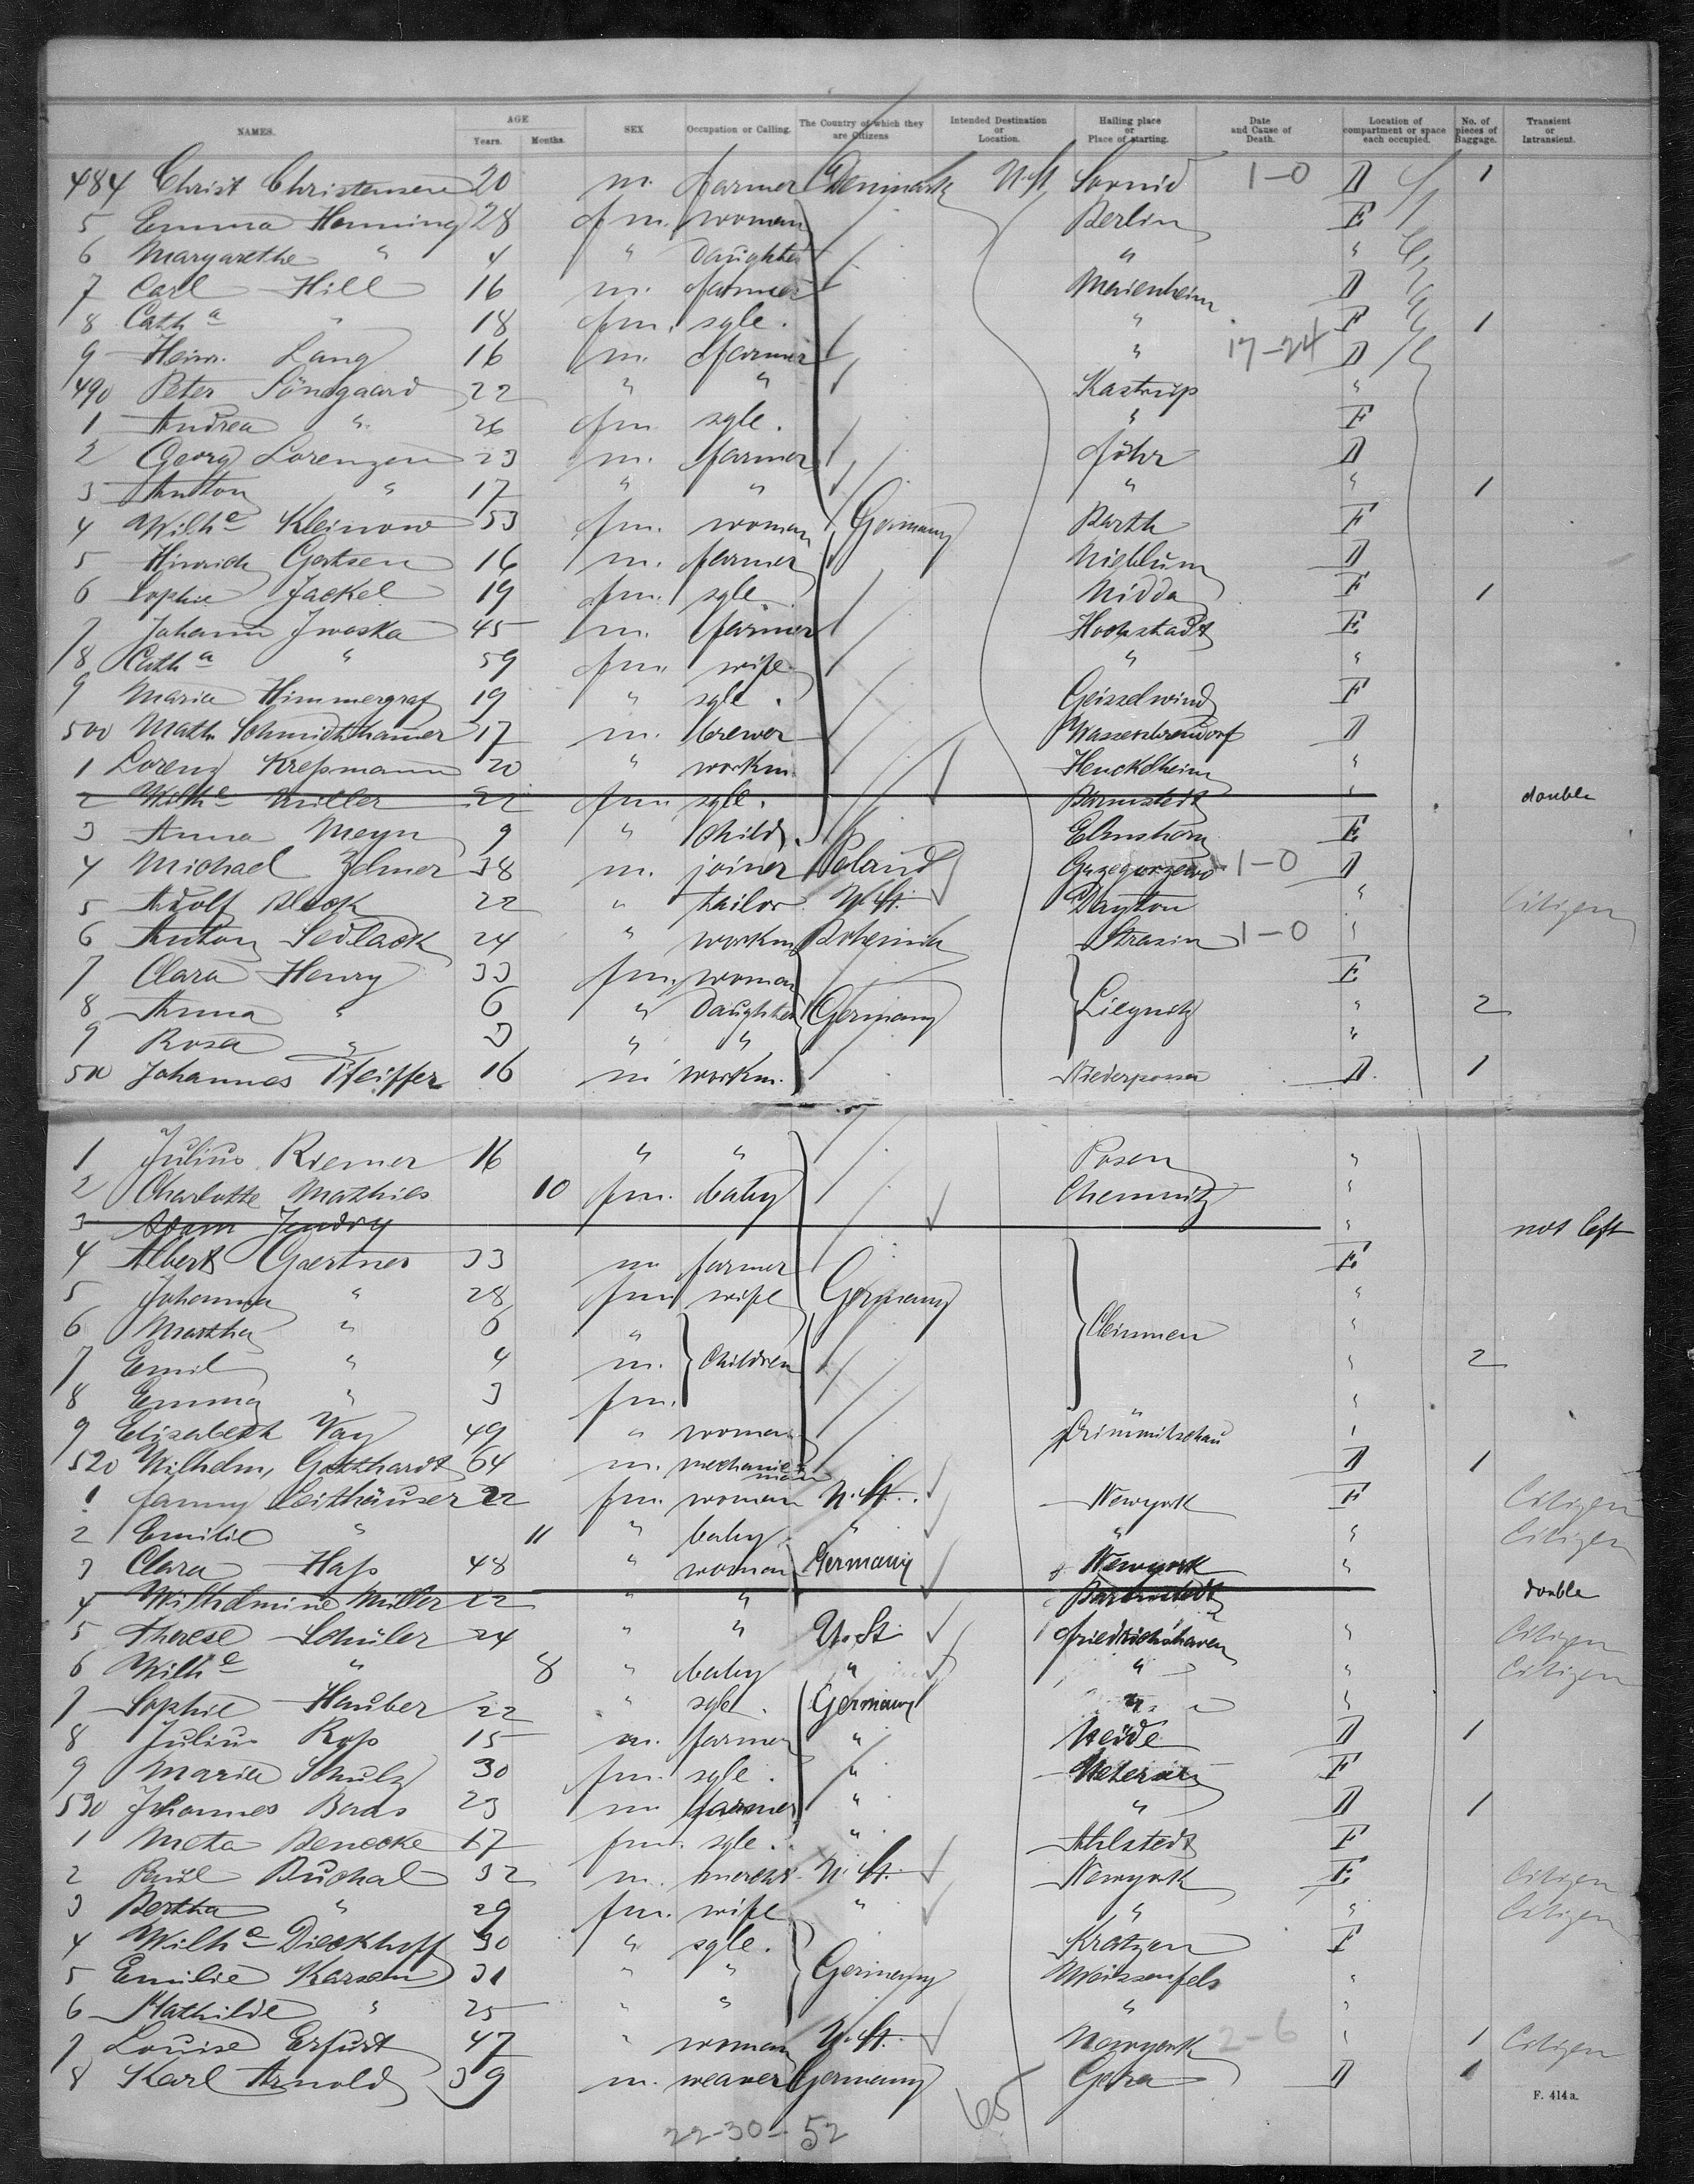 NAMES. AGE Years. Months. SEX Occupation or Calling. The Country of which they are Citizens Intended Destination or Location. Hailing place or Place of starting. Date and Cause of Death. Location of compartment or space each occupied. No. of pieces of Baggage. Transient or Intransient.
484 Christ Christensen 20 m. farmer Denmark U.St. 1-0 D 1
5 Emma Henning 28 fm. woman Berlin E
6 Margarethe " 4 " Daughter " "
7 Carl Hill 16 m. farmer Marienheim D
8 Catha " 18 fm. sgle. " F 1
9 Heinr. Lang 16 m. farmer " 17-24 D
490 Peter Söndgaard 22 " " Kastrup "
1 Andrea " 26 fm. sgle. " F
2 Georg Lorenzen 23 m. farmer Föhr D
3 Anton " 17 " " " " 1
4 Wilhe Kleinow 53 fm. woman Germany Barth F
5 Hinrich 16 m. farmer Nieblum D
6 Sophie Jäckel 19 fm. sgle. Nidda F 1
7 Johann Iwaska 45 m. farmer Hochstadt E
8 Catha " 59 fm. wife " "
9 Maria Himmergraf 19 " sgle. Geisselwind F
500 Math. Schmidthamer 17 m. brewer D
1 Lorenz Kressmann 20 " workm. Heuckelheim "
2 Wilhe Miller 22 fm. sgle. Barmstedt " double
3 Anna Meyn 9 " child. Elmshorn E
4 Michael Zelmer 38 m. joiner Poland 1-0 D
5 Adolf Block 22 " tailor U.St. Dayton " Citizen
6 Anton Sedlack 24 " workm. Bohemia Strasin 1-0 "
7 Clara Henry 33 fm. woman E
8 Anna " 6 " Daughter Germany Liegnitz " 2
9 Rosa " 3 " " "
510 Johannes Pfeiffer 16 m workm. Niederpossa D. 1
1 Julius Riemer 16 " " Posen "
2 Charlotte Mathies 10 fm. baby Chemnitz "
3 Adam Jendry " not left
4 Albert Gaertner 33 m farmer E
5 Johanna " 28 fm wife Germany "
6 Martha " 6 " "
7 Emil " 4 m. Children " 2
8 Emma " 3 fm. "
9 Elisabeth Vay 49 " woman Crimmitschau "
520 Wilhelm Gotthardt 64 m. mechanic D 1
1 Fanny Leithäuser 22 fm. woman U.St. Newyork F Citizen
2 Emilie " 11 " baby " " " Citizen
3 Clara Hass 48 " woman Germany Newyork "
4 Wilhelmine Miller 22 " " Barmstedt double
5 Therese Schüler 24 " " U.St. Friedrichshaven " Citizen
6 Wilhe " 8 " baby " " " Citizen
7 Sophie Hauber 22 " sgle. Germany " "
8 Julius Ross 15 m. farmer " Heide D 1
9 Maria Schulz 30 fm. sgle. " Uetersen F
530 Johannes 23 m farmer " " D 1
1 Meta Benecke 17 fm. sgle. " Ahlstedt F
2 Paul Buchal 32 m. U.St. Newyork E Citizen
3 Bertha " 29 fm. wife " " " Citizen
4 Wilhe Dieckhoff 30 " sgle. Kratzen F
5 Emilie Karsen 31 " " Germany Weissenfels "
6 Mathilde " 25 " " " "
7 Louise Erfurt 47 " woman U.St. Newyork 2-6 " 1 Citizen
8 Karl Arnold 39 m. weaver Germany Gera D 1
F. 414a.
22-30-52 65